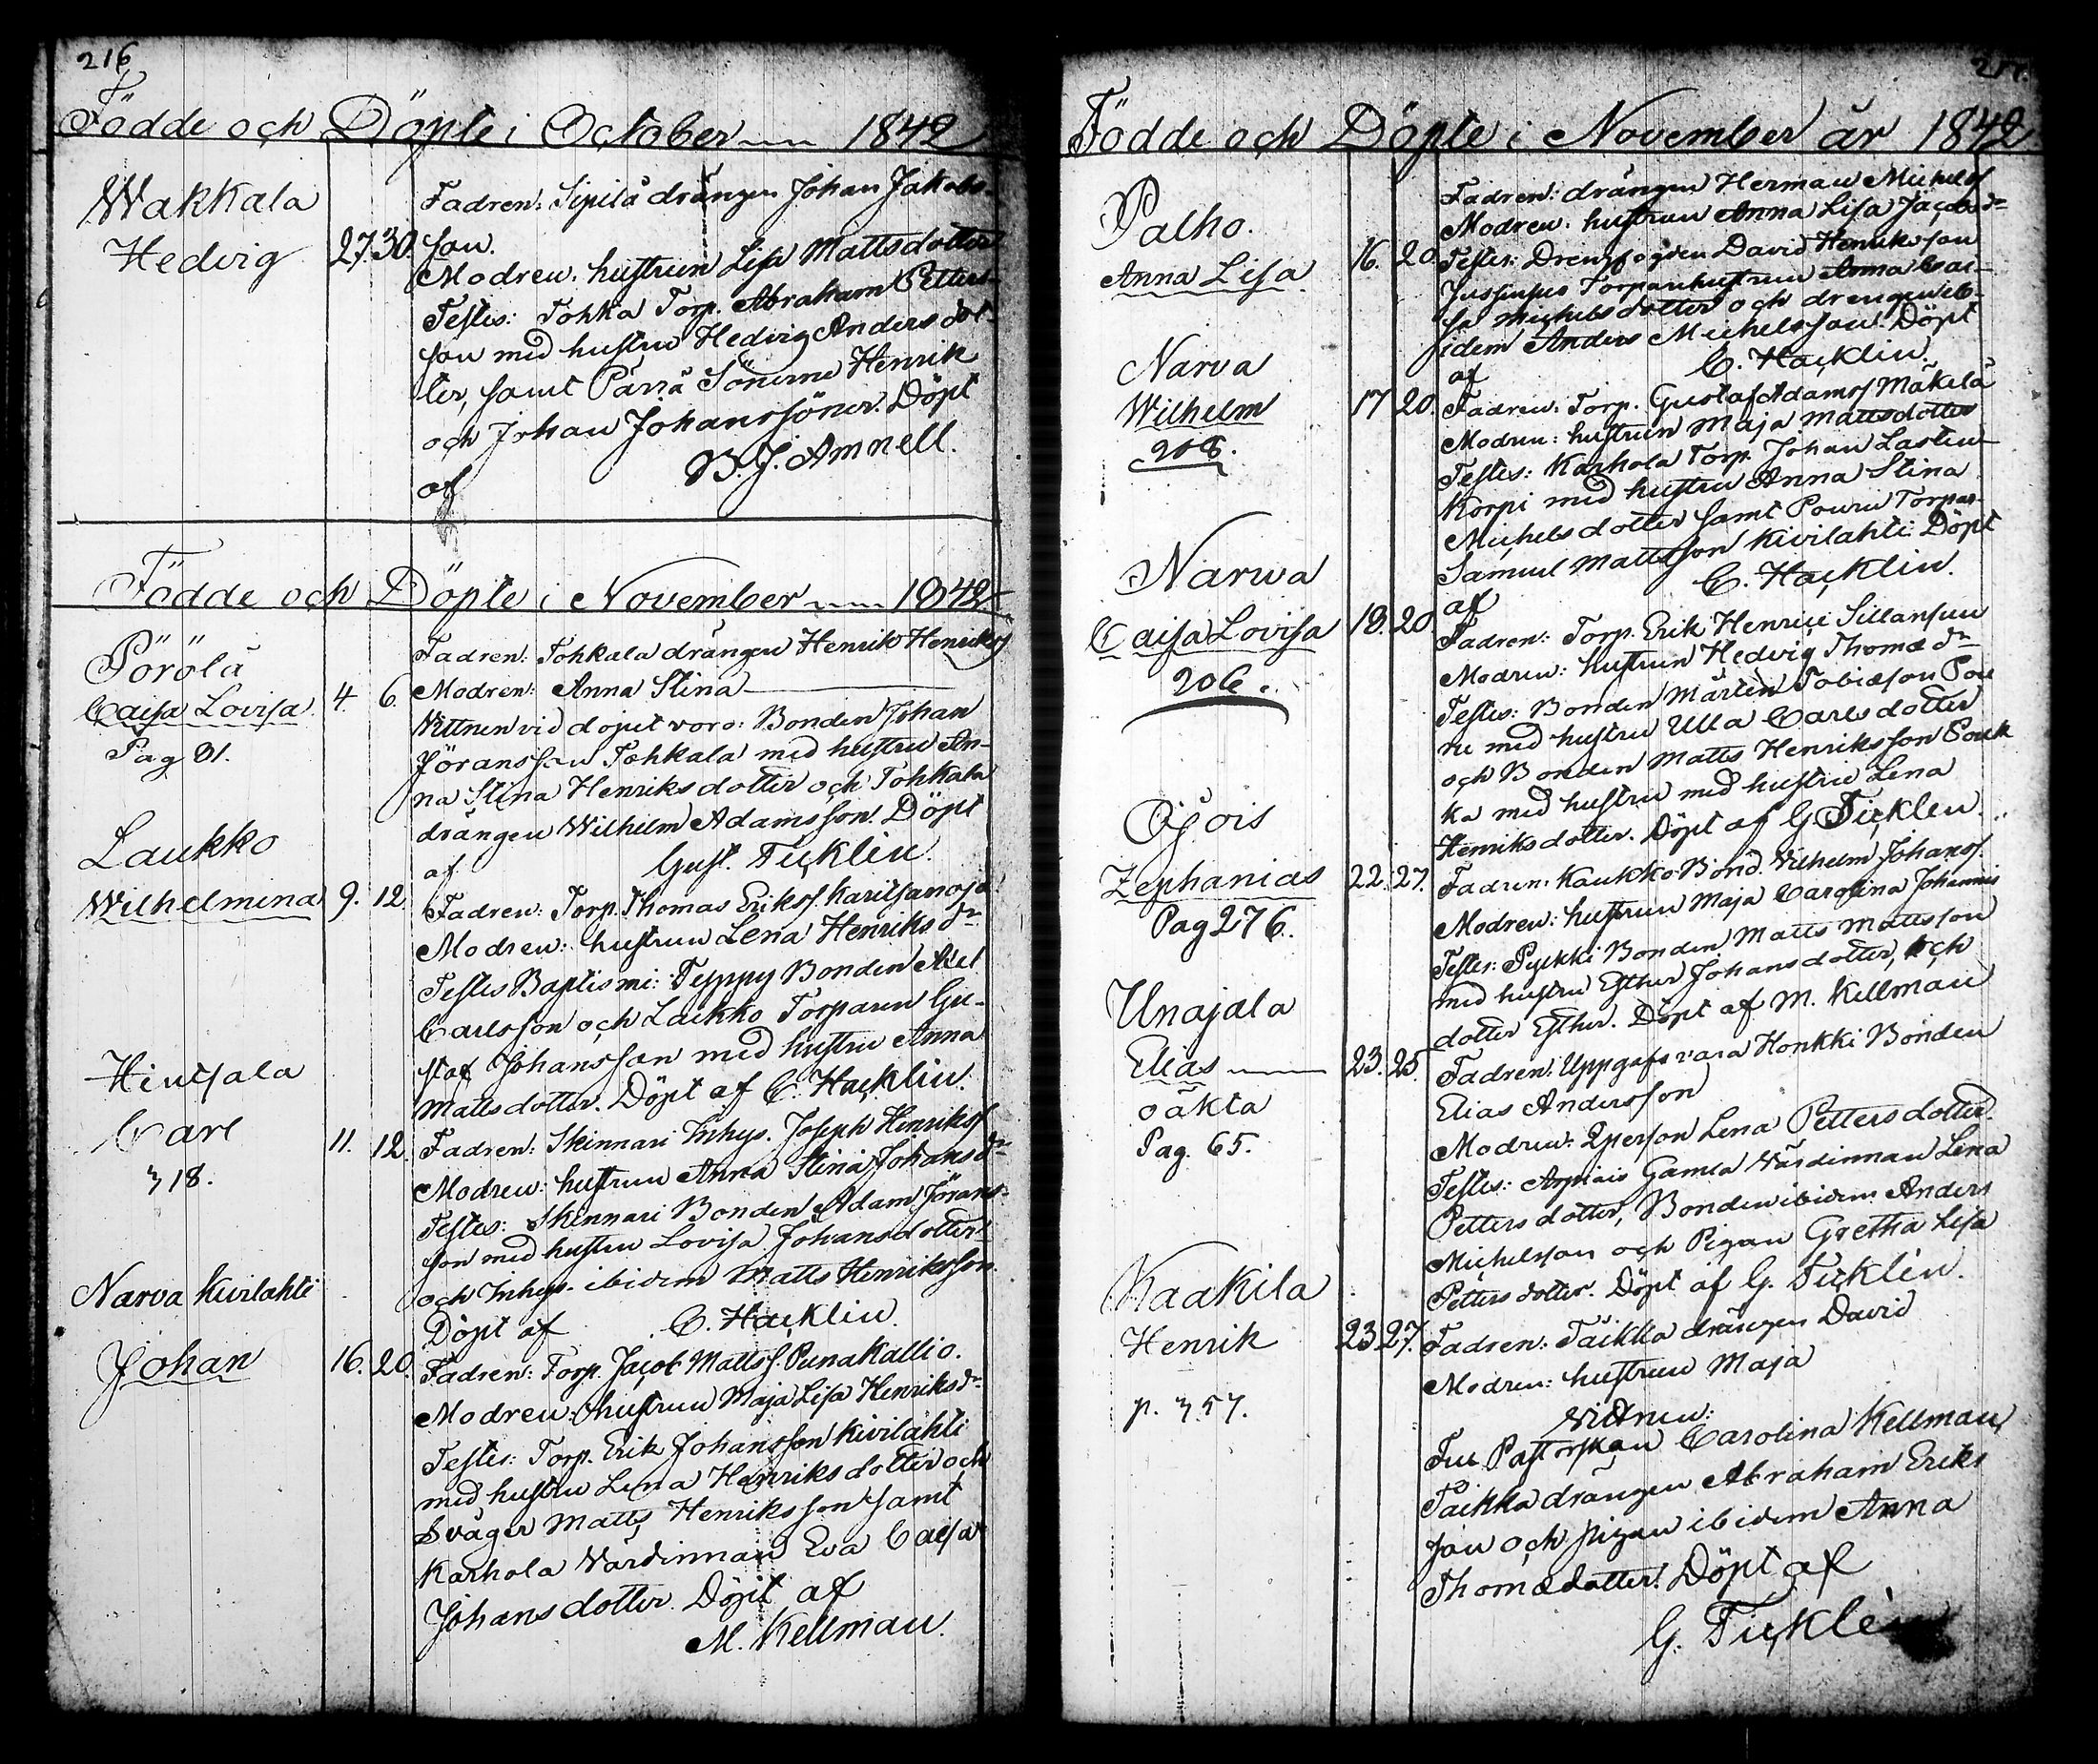 216
Födde och Döpte i October 1842
Wakkala
Hedvig 27. 30.
Fadren: Sipilä drängen Johan Jakobs-
son.
Modren: hustrun Lisa Mattsdotter
Testes: Tohka Torp. Abraham Petters-
son med hustru Hedvig Andersdot-
ter, samt Pärrä Sönerne Henrik
och Johan Johanssöner. Döpt
af B. J. Amnell.
Födde och Döpte i November 1842
Pörölä
Caisa Lovisa 4. 6.
Pag 81.
Fadren: Tohkala drängen Henrik Henrikss
Modren: Anna Stina
Vittnen vid dopet voro: Bonden Johan
Jöransson Tohkala med hustru An-
na Stina Henriksdotter och Tohkala
drängen Wilhelm Adamsson. Döpt
af Gust. Ticklén.
Laukko
Wilhelmina 9. 12.
Fadren: Torp. Thomas Erikss. Karitsanoja
Modren: hustrun Lena Henriks dr
Testes Baptismi: Teyppy Bonden Axel
Carlsson och Laukko Torparen Gu-
staf Johansson med hustru Anna
Mattsdotter. Döpt af C. Hacklin.
Hintsala
Carl 11. 12.
318.
Fadren: Skinnari Inhys. Joseph Henrikss
Modren: hustrun Anna Stina Johans dr
Testes: Skinnari Bonden Adam Jörans-
son med hustru Lovisa Johansdotter
och Inhys. ibidem Matts Henriksson.
Döpt af C. Hacklin.
Narva Kivilahti
Johan 16. 20.
Fadren: Torp. Jacob Mattss. Punakallio.
Modren: hustrun Maja Lisa Henriks dr
Testes: Torp. Erik Johansson Kivilahti
med hustru Lena Henriksdotter och
Svåger Matts Henriksson samt
Karhola Värdinnan Eva Caisa
Johansdotter. Döpt af
M. Kellman.
217.
Födde och Döpte i November år 1842
Palho.
Anna Lisa 16. 20.
Fadren: drängen Herman Michelss
Modren: hustrun Anna Lisa Jacobs dr
Testes: Drengfogden David Henriksson
Torparehustrun Anna Cai-
sa Michelsdotter och drengen ib-
idem Anders Michelsson. Döpt
af C. Hacklin.
Narva
Wilhelm 17 20.
208.
Fadren: Torp. Gustaf Adamss Mäkelä
Modren: hustrun Maja Mattsdotter
Testes: Karhola Torp. Johan Lastun-
Korpi med hustru Anna Stina
Michelsdotter samt Pouru Torpar.
Samuel Mattsson Kivilahti. Döpt
af C. Hacklin.
Narwa
Caisa Lovisa 18. 20
206.
Fadren: Torp. Erik Henrici Sillansuu
Modren: hustrun Hedvig Thomæ dr
Testes: Bonden Mårten Tobiæson Pou
ru med hustru Ulla Carlsdotter
och Bonden Matts Henriksson Pouk
ka med hustru med hustru Lena
Henriksdotter. Döpt af G. Ticklén.
Ojois
Zephanias 22. 27.
Pag 276.
Fadren: Kaukko Bond. Vilhelm Johanss.
Modren: hustrun Maja Carolina Johannis
Testes: Pyykki Bonden Matts Mattsson
med hustru Esther Johansdotter, och
dotter Esther. Döpt af M. Kellman
Unajala
Elias 23. 25.
oäkta
Pag. 65.
Fadren: Uppgafs vara Honkki Bonden
Elias Andersson
Modren: Qperson Lena Pettersdotter.
Testes: Arpiais Gamla Värdinnan Lena
Pettersdotter, Bonden ibidem Anders
Michelsson och Pigan Gretha Lisa
Pettersdotter. Döpt af G. Ticklén.
Kaakila
Henrik 23 27.
p. 357.
Fadren: Taikka drängen David
Modren: hustrun Maja
Vittnen:
Fru Pastorskan Carolina Kellman,
Taikka drängen Abraham Eriks
son och pigan ibidem Anna
Thomædotter. Döpt af
G. Ticklén